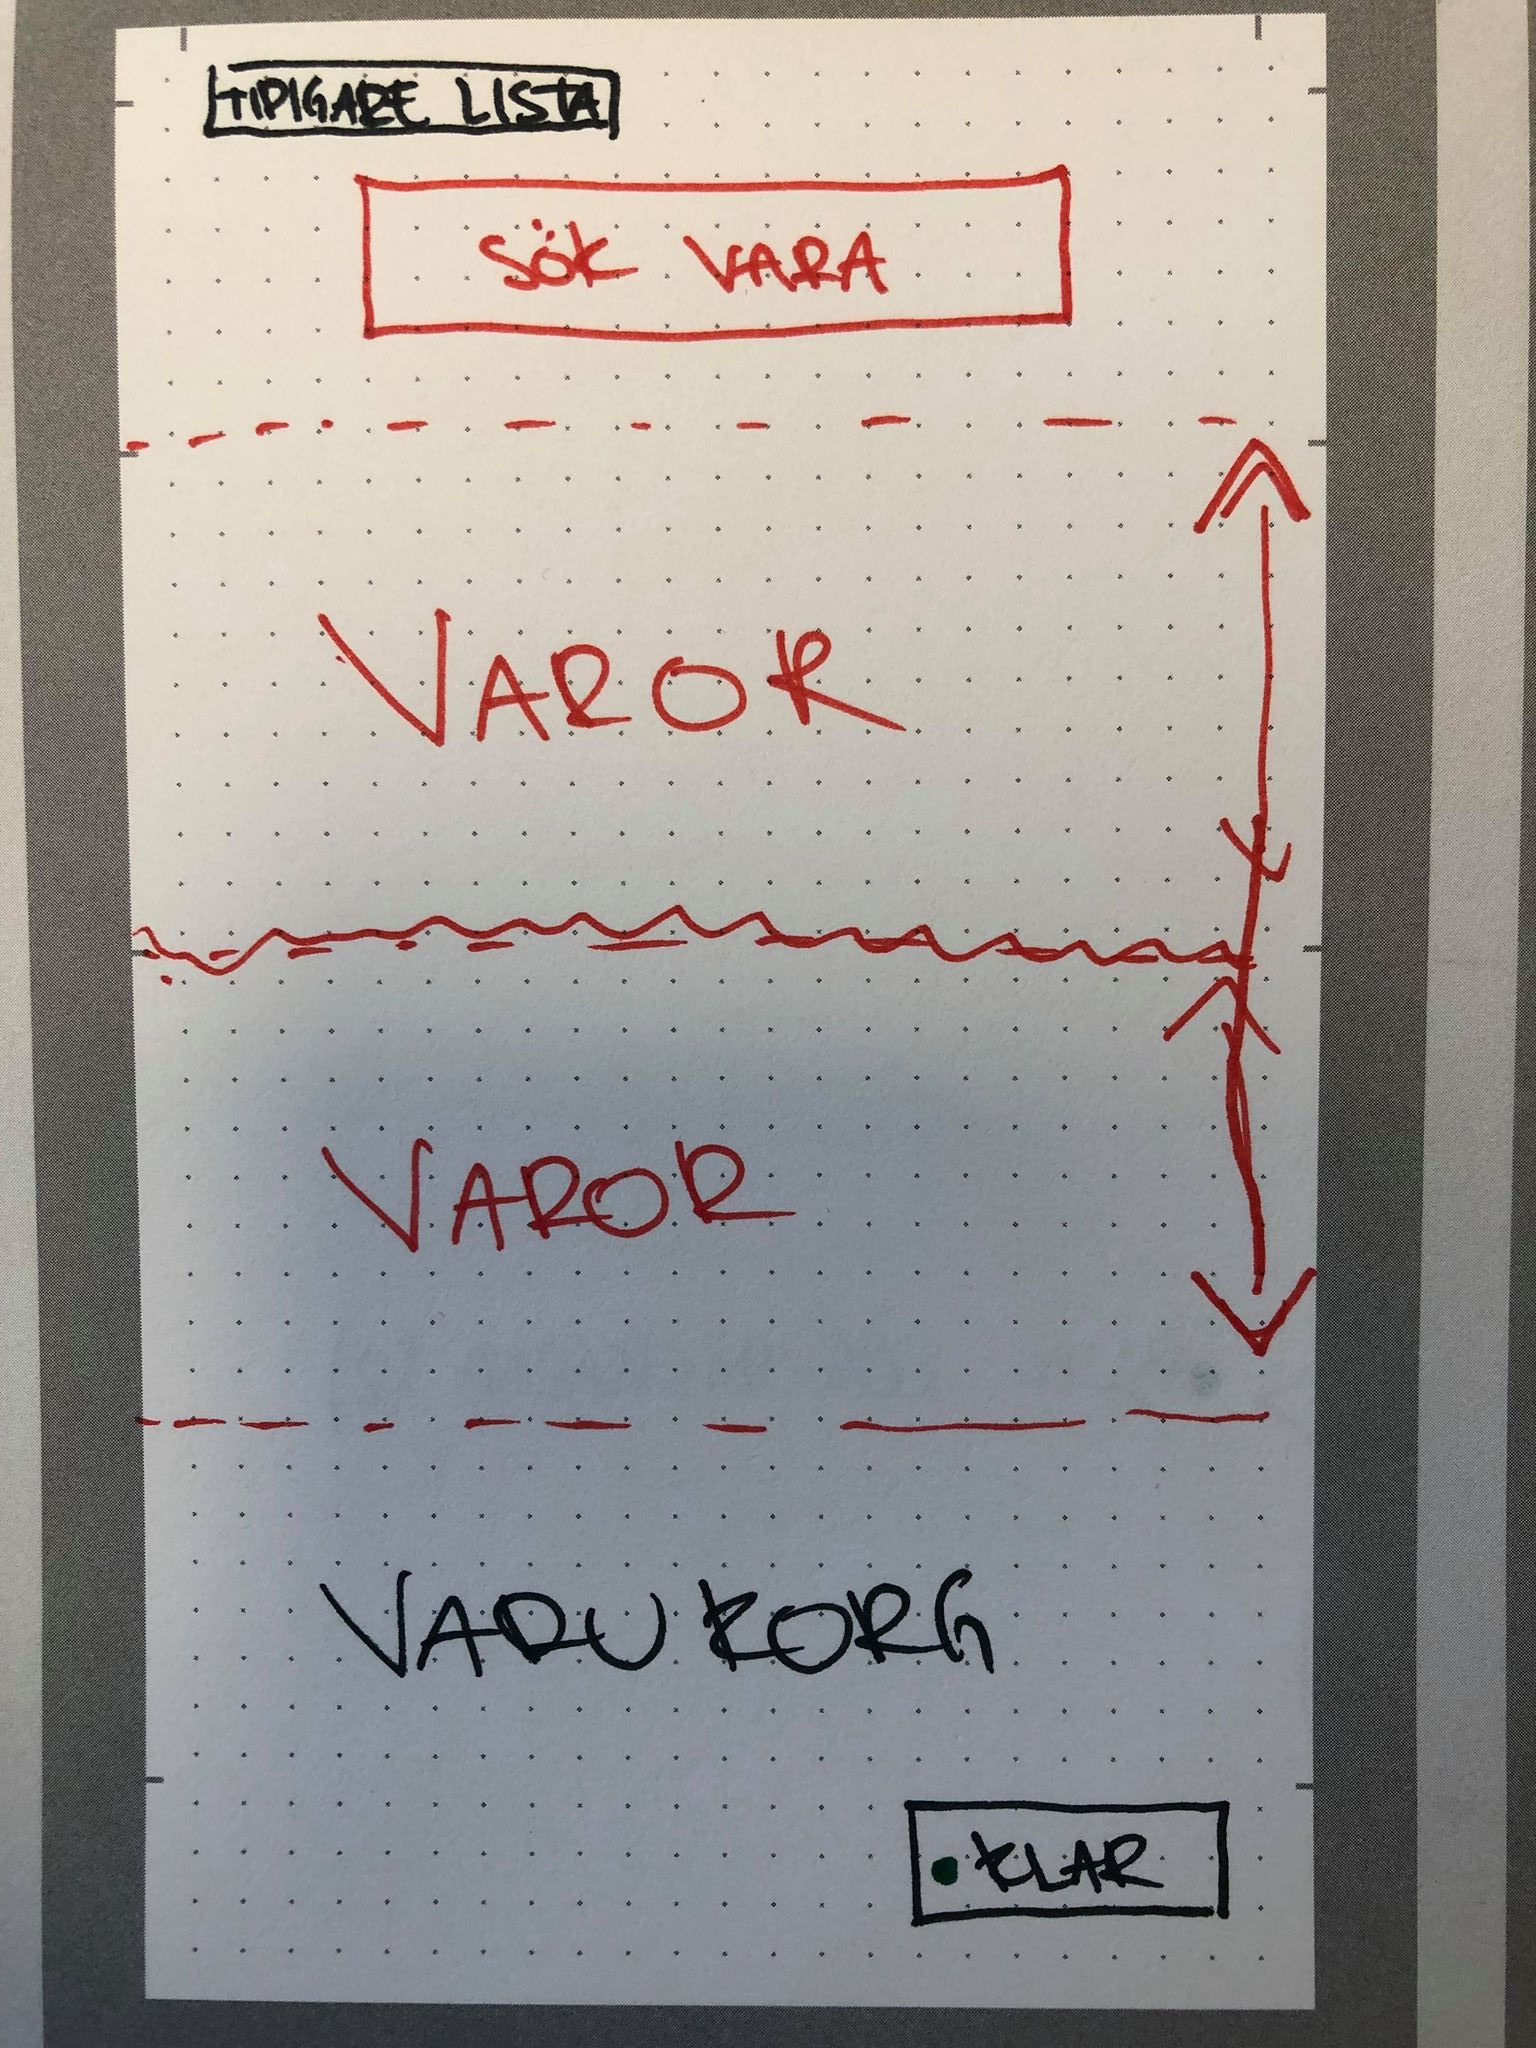 TIDIGARE LISTA
SÖK VARA
VAROR
VAROR
VARUKORG
KLAR